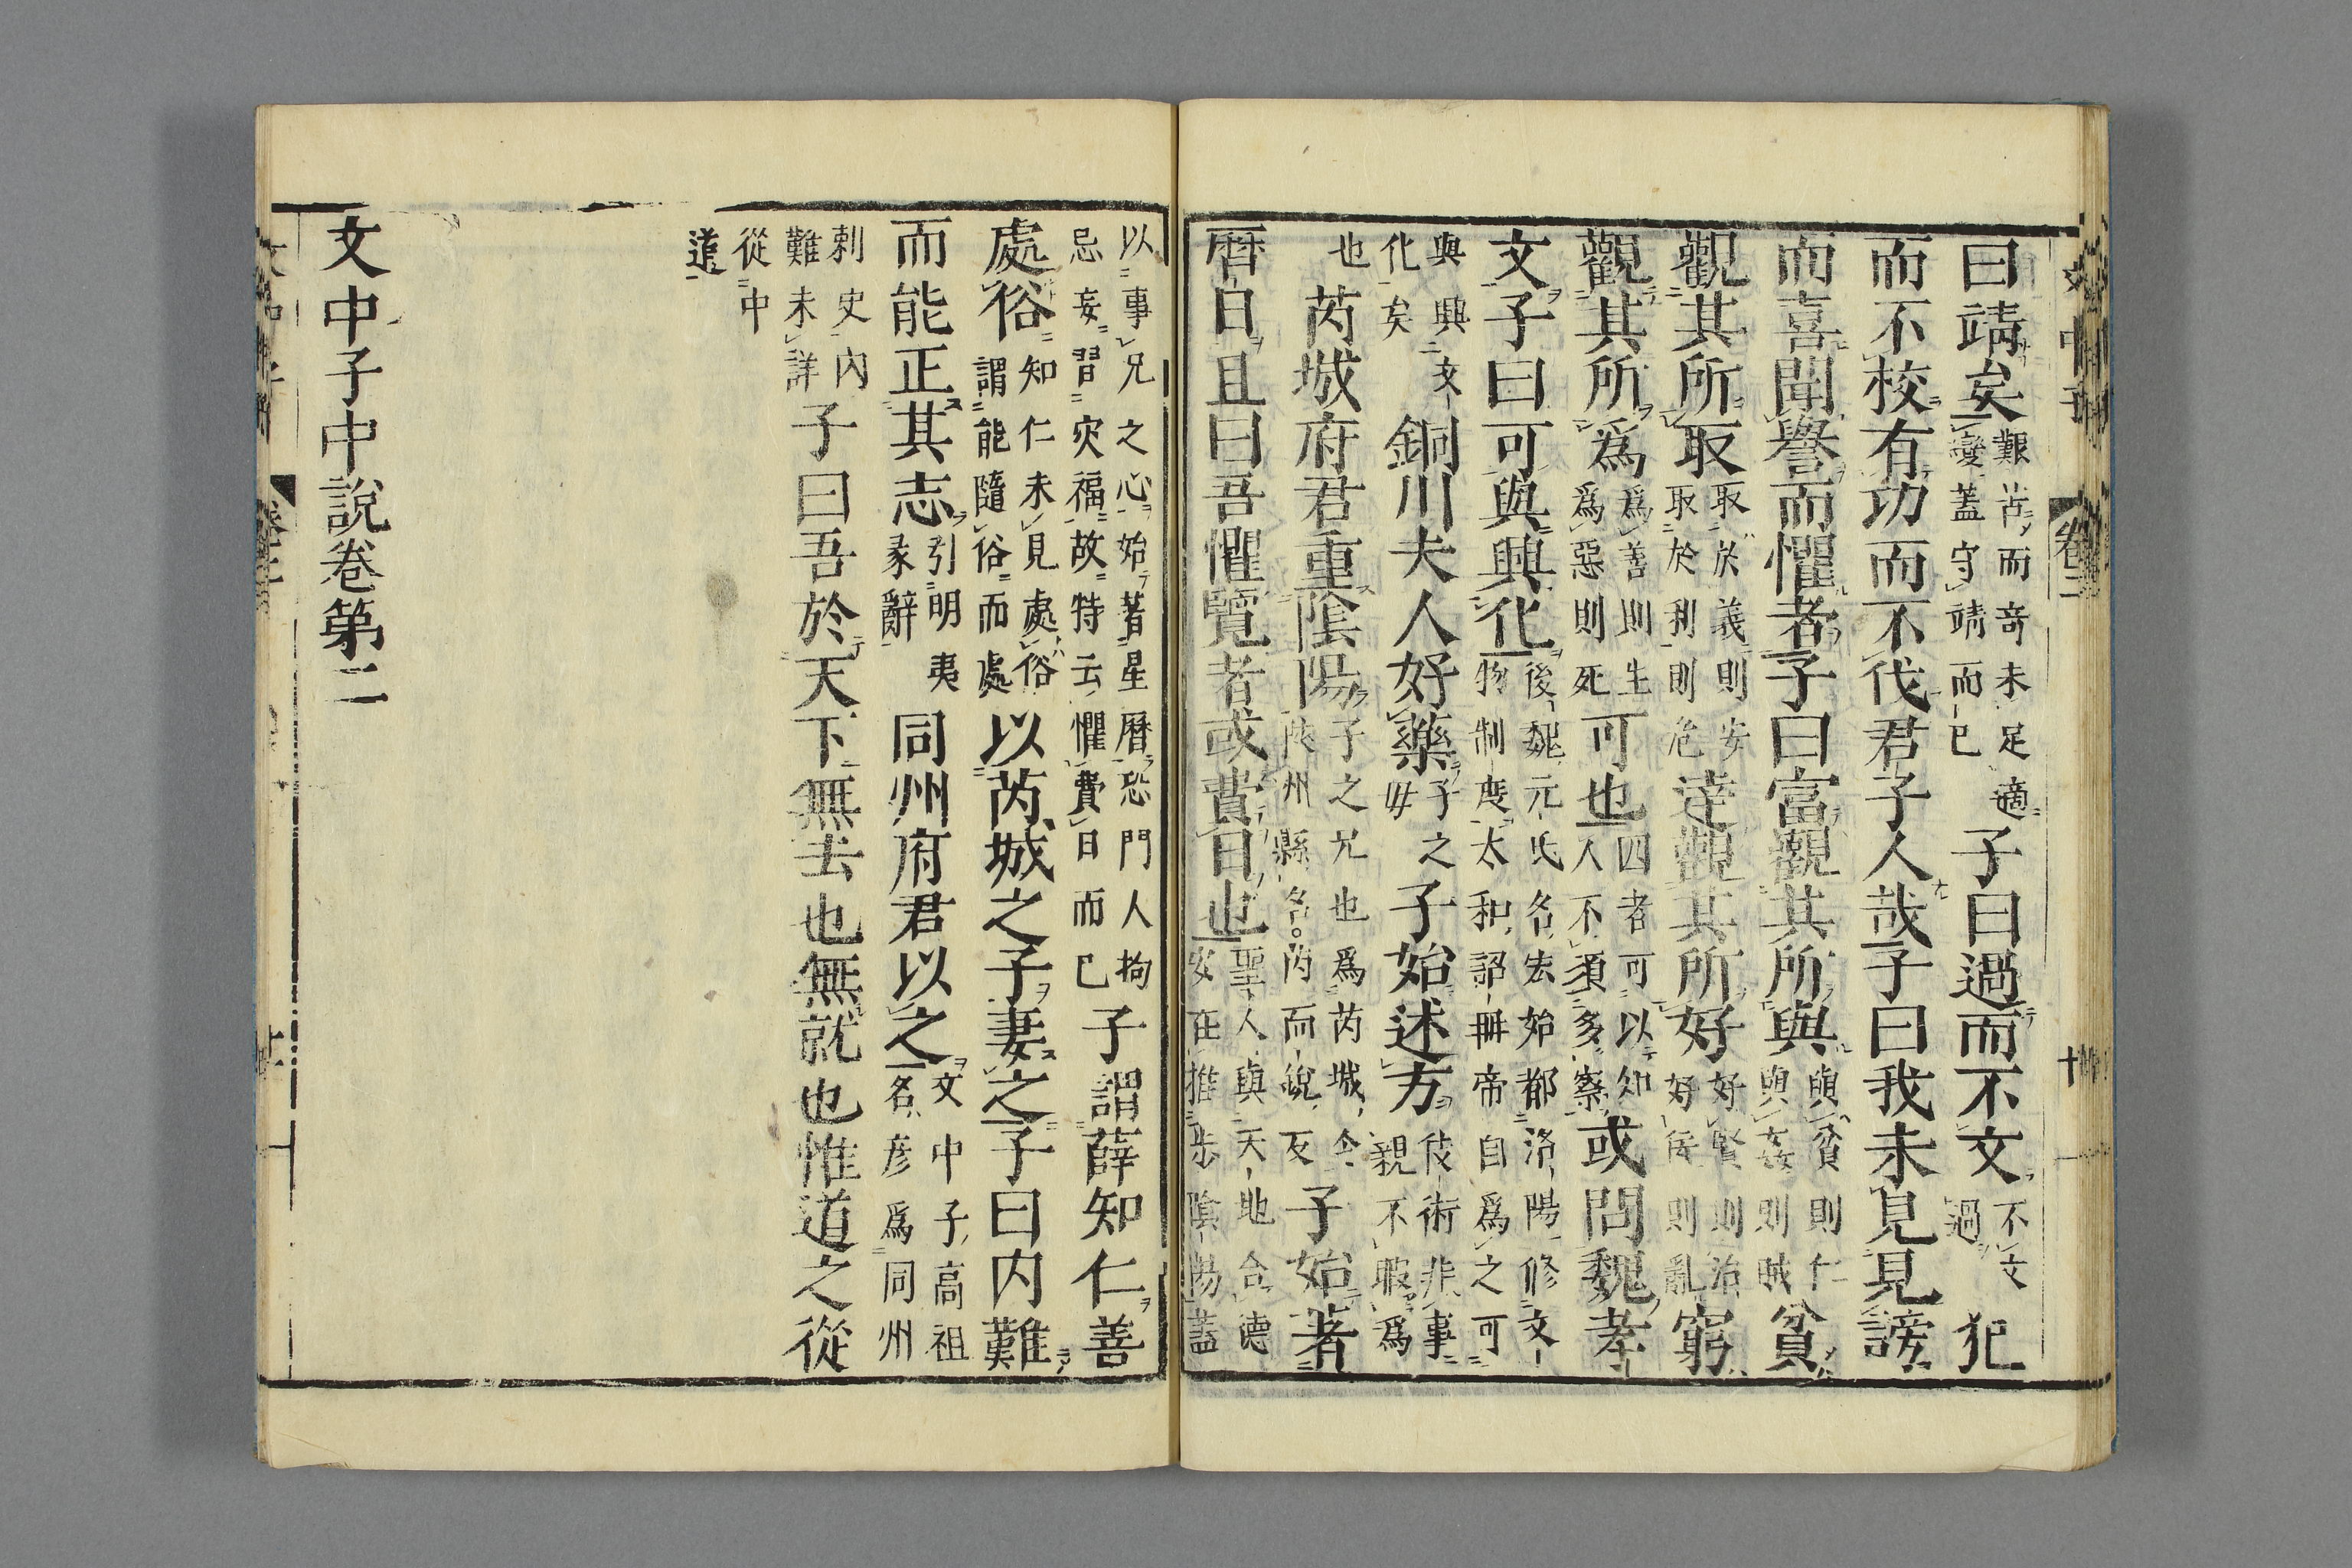 文中子 卷二 十
曰靖矣艱苦而竒未足適變蓋守靖而已子曰過而不文不文過犯
而不校有功而不伐君子人哉子曰我未見見謗
而喜聞譽而懼者子曰富觀其所與與貧則仁與姦則賊貧
觀其所取取於義則安取於利則危達觀其所好好賢則治好佞則亂窮
觀其所爲爲善則生爲惡則死可也四者可以知人不須多察或問魏孝
文子曰可與興化後魏元氏名宏始都洛陽修文物制度太和詔冊帝自爲之可
與興文化矣銅川夫人好藥子之母子始述方伎術非事親不暇爲
也芮城府君重陰陽子之兄也爲芮城令陝州縣名芮而銳反子始著
曆日且曰吾懼覽者或費日也聖人與天地合德安在推步陰陽蓋
以事兄之心始著星曆恐門人拘忌妄習灾福故特云懼費日而已子謂薛知仁善
處俗知仁未見處俗謂能隨俗而處以芮城之子妻之子曰内難
而能正其志引明夷彖辭同州府君以之文中子高祖名彥爲同州
刺史内難未詳子曰吾於天下無去也無就也惟道之從
從中道
文中子中說卷第二